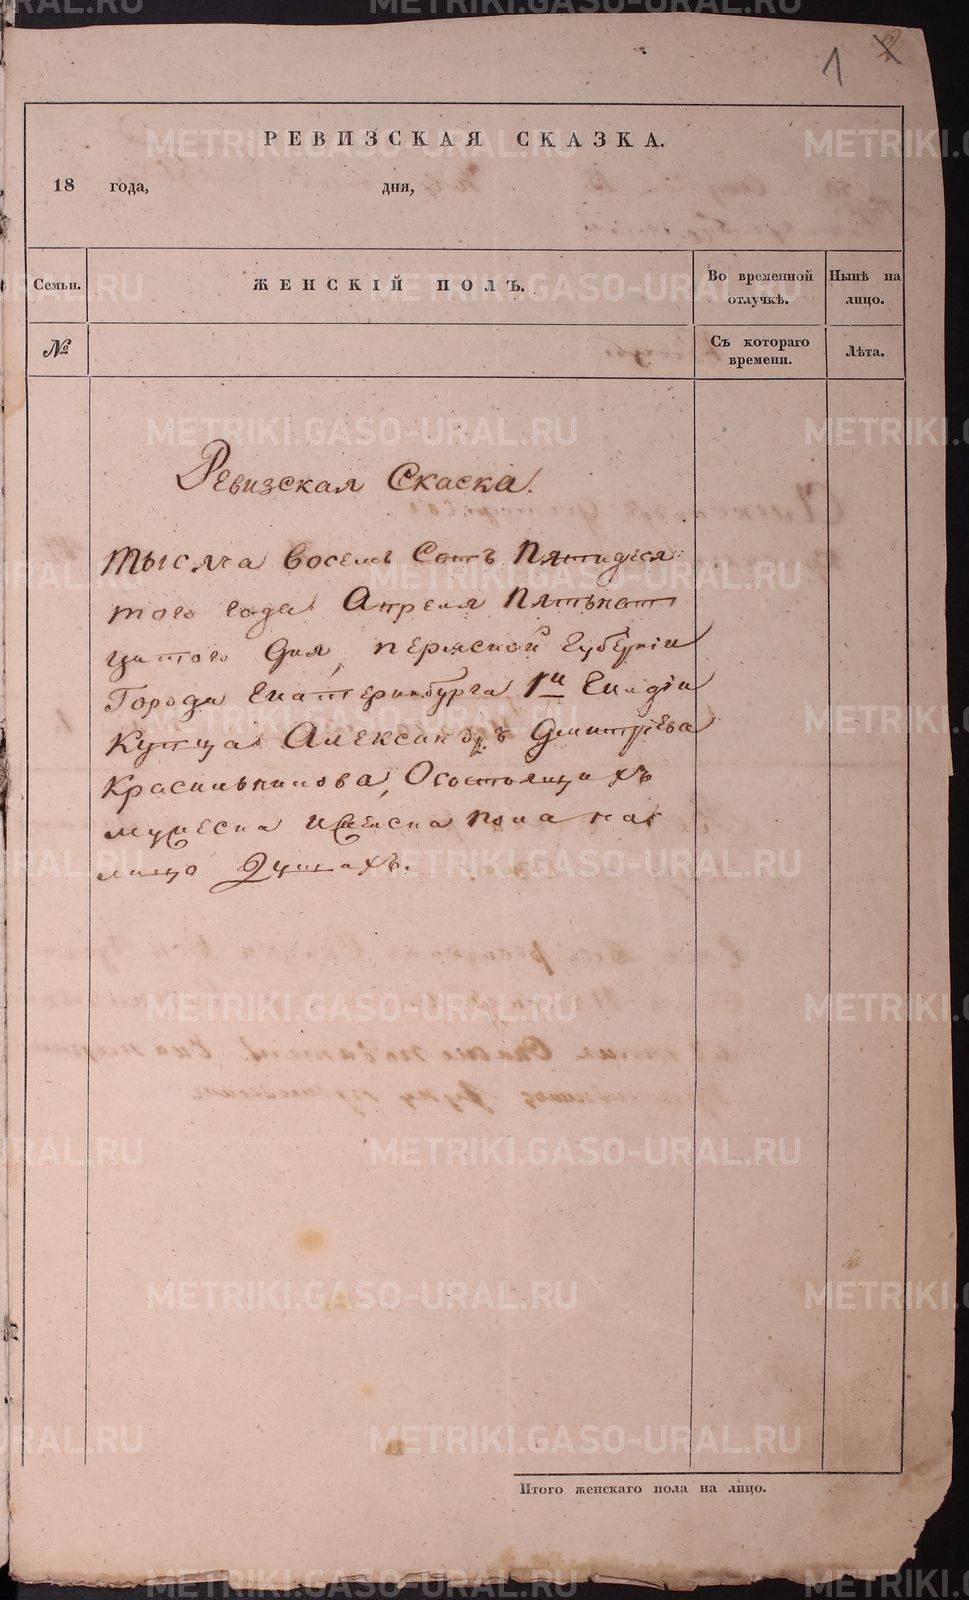 1 2
РЕВИЗСКАЯ СКАЗКА.
18 года, дня,
Семьи. ЖЕНСКІЙ ПОЛЪ. Во временной отлучкѣ. Нынѣ на лицо.
№ Съ котораго времени. Лѣта.
Ревизская Скаска.
тысяча восемь Сотъ Пятидеся
того года Апреля Пятьнат
цатого дня, пермской губернiи
Города Екатеринбурга 1й Гилдiи
Купца Александръ Дмитрiева
Красильникова, Осостоящихъ
мужеска иженска пола на
лицо Душахъ.
Итого женскаго пола на лицо.
METRIKI.GASO-URAL.RU